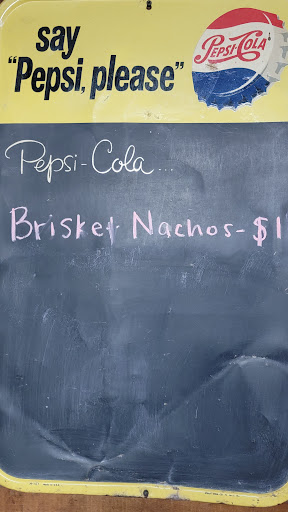 say
"Pepsi, please"
PEPSI-COLA
Pepsi-Cola...
Brisket Nachos-$1